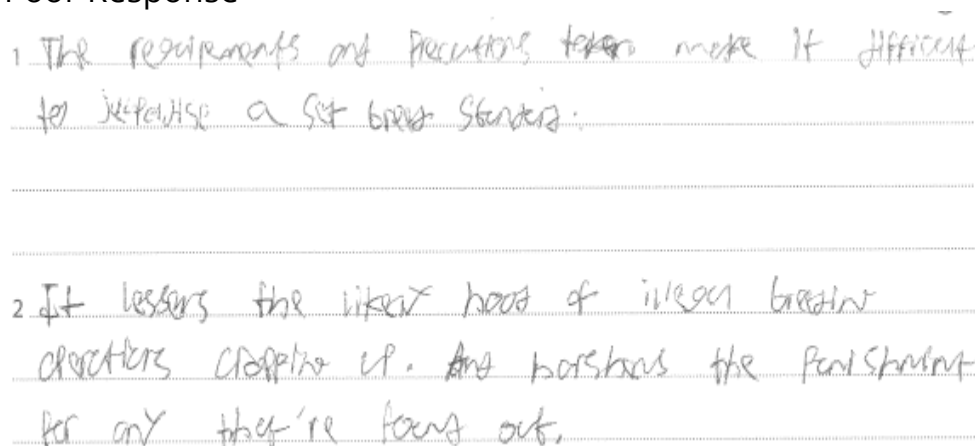 Poor Response
1 The requirements and Precautions taken make it difficult
to a set breed standard.
2 It lessens the likely hood of illegal breeding
operations cropping up. And harshens the Punishment
for any they're found out.